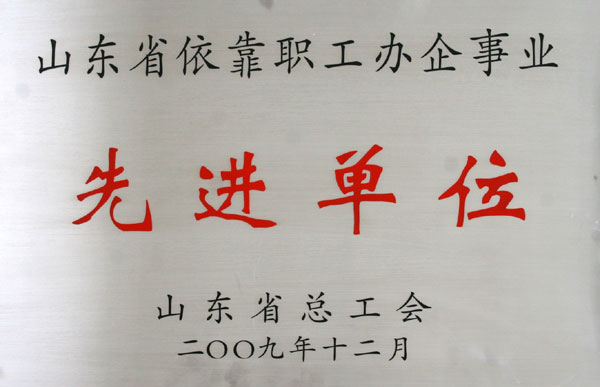 山东省依靠职工办企事业
先进单位
山东省总工会
二〇〇九年十二月